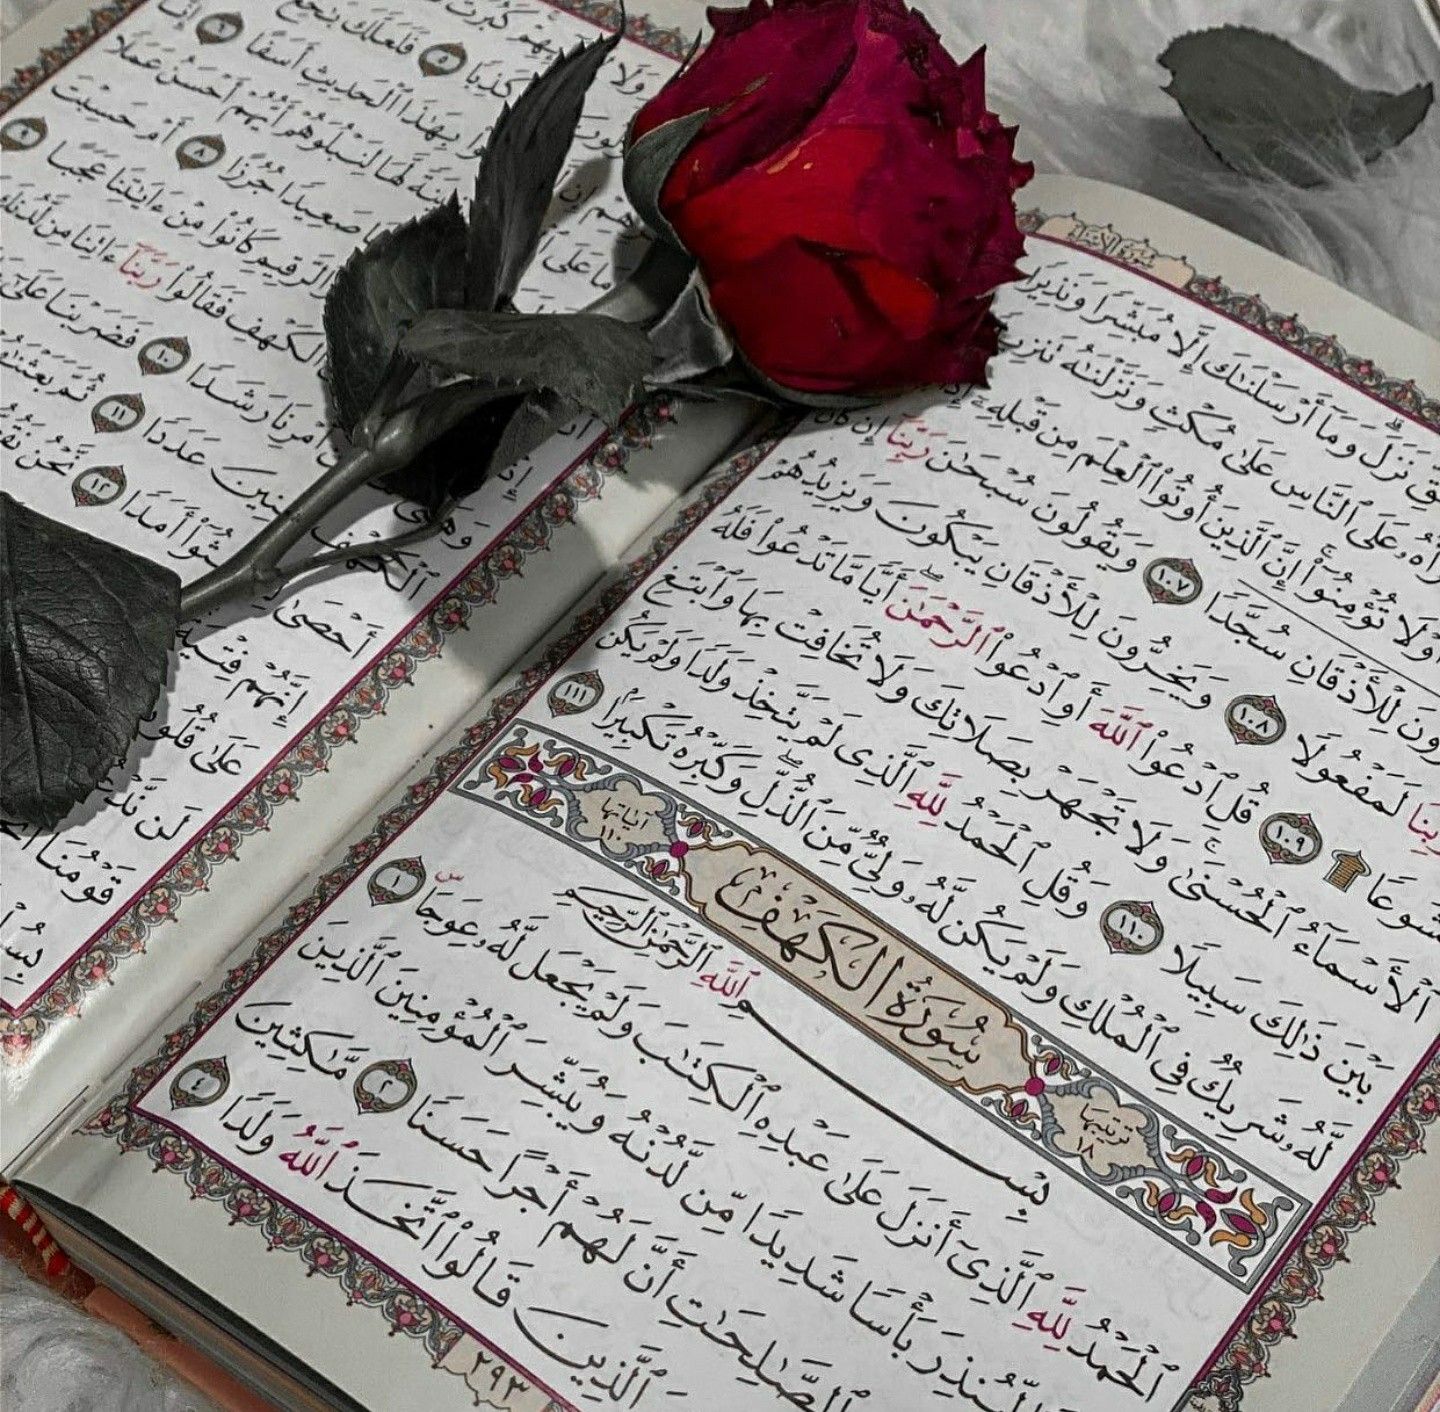 سُورَةُ الإِسْرَاءِ
نَزَلَ ۗ وَمَآ أَرْسَلْنَٰكَ إِلَّا مُبَشِّرًا وَنَذِيرًا
عَلَى ٱلنَّاسِ عَلَىٰ مُكْثٍ وَنَزَّلْنَٰهُ
أَوْ لَا تُؤْمِنُوٓا۟ ۚ إِنَّ ٱلَّذِينَ أُوتُوا۟ ٱلْعِلْمَ مِن قَبْلِهِۦٓ إِذَا
لِلْأَذْقَانِ سُجَّدًا ١٠٧ وَيَقُولُونَ سُبْحَٰنَ رَبِّنَآ إِن كَانَ
لَمَفْعُولًا ١٠٨ وَيَخِرُّونَ لِلْأَذْقَانِ يَبْكُونَ وَيَزِيدُهُمْ
١٠٩ قُلِ ٱدْعُوا۟ ٱللَّهَ أَوِ ٱدْعُوا۟ ٱلرَّحْمَٰنَ ۖ أَيًّا مَّا تَدْعُوا۟ فَلَهُ
ٱلْأَسْمَآءُ ٱلْحُسْنَىٰ ۚ وَلَا تَجْهَرْ بِصَلَاتِكَ وَلَا تُخَافِتْ بِهَا وَٱبْتَغِ
بَيْنَ ذَٰلِكَ سَبِيلًا ١١٠ وَقُلِ ٱلْحَمْدُ لِلَّهِ ٱلَّذِى لَمْ يَتَّخِذْ وَلَدًا وَلَمْ يَكُن
لَّهُۥ شَرِيكٌ فِى ٱلْمُلْكِ وَلَمْ يَكُن لَّهُۥ وَلِىٌّ مِّنَ ٱلذُّلِّ ۖ وَكَبِّرْهُ تَكْبِيرًۢا ١١١
ترتيبها ١٨ سُورَةُ الكَهْفِ آياتها ١١٠
بِسْمِ ٱللَّهِ ٱلرَّحْمَٰنِ ٱلرَّحِيمِ
ٱلْحَمْدُ لِلَّهِ ٱلَّذِىٓ أَنزَلَ عَلَىٰ عَبْدِهِ ٱلْكِتَٰبَ وَلَمْ يَجْعَل لَّهُۥ عِوَجَا ۜ ١
لِّيُنذِرَ بَأْسًا شَدِيدًا مِّن لَّدُنْهُ وَيُبَشِّرَ ٱلْمُؤْمِنِينَ ٱلَّذِينَ
ٱلصَّٰلِحَٰتِ أَنَّ لَهُمْ أَجْرًا حَسَنًا ٢ مَّٰكِثِينَ
ٱلَّذِينَ قَالُوا۟ ٱتَّخَذَ ٱللَّهُ وَلَدًا ٤
٢٩٣
وَلَا كَبُرَتْ
كَذِبًا ٥ فَلَعَلَّكَ بَٰخِعٌ
بِهَٰذَا ٱلْحَدِيثِ أَسَفًا ٦ إِنَّا
لَّهَا لِنَبْلُوَهُمْ أَيُّهُمْ أَحْسَنُ عَمَلًا
صَعِيدًا جُرُزًا ٨ أَمْ حَسِبْتَ
وَٱلرَّقِيمِ كَانُوا۟ مِنْ ءَايَٰتِنَا عَجَبًا ٩
ٱلْكَهْفِ فَقَالُوا۟ رَبَّنَآ ءَاتِنَا مِن لَّدُنكَ
أَمْرِنَا رَشَدًا ١٠ فَضَرَبْنَا عَلَىٰٓ
سِنِينَ عَدَدًا ١١ ثُمَّ بَعَثْنَٰهُمْ
أَحْصَىٰ لِمَا لَبِثُوٓا۟ أَمَدًا ١٢ نَّحْنُ نَقُصُّ
إِنَّهُمْ فِتْيَةٌ
عَلَىٰ قُلُوبِهِمْ
لَن نَّدْعُوَا۟
قَوْمُنَا